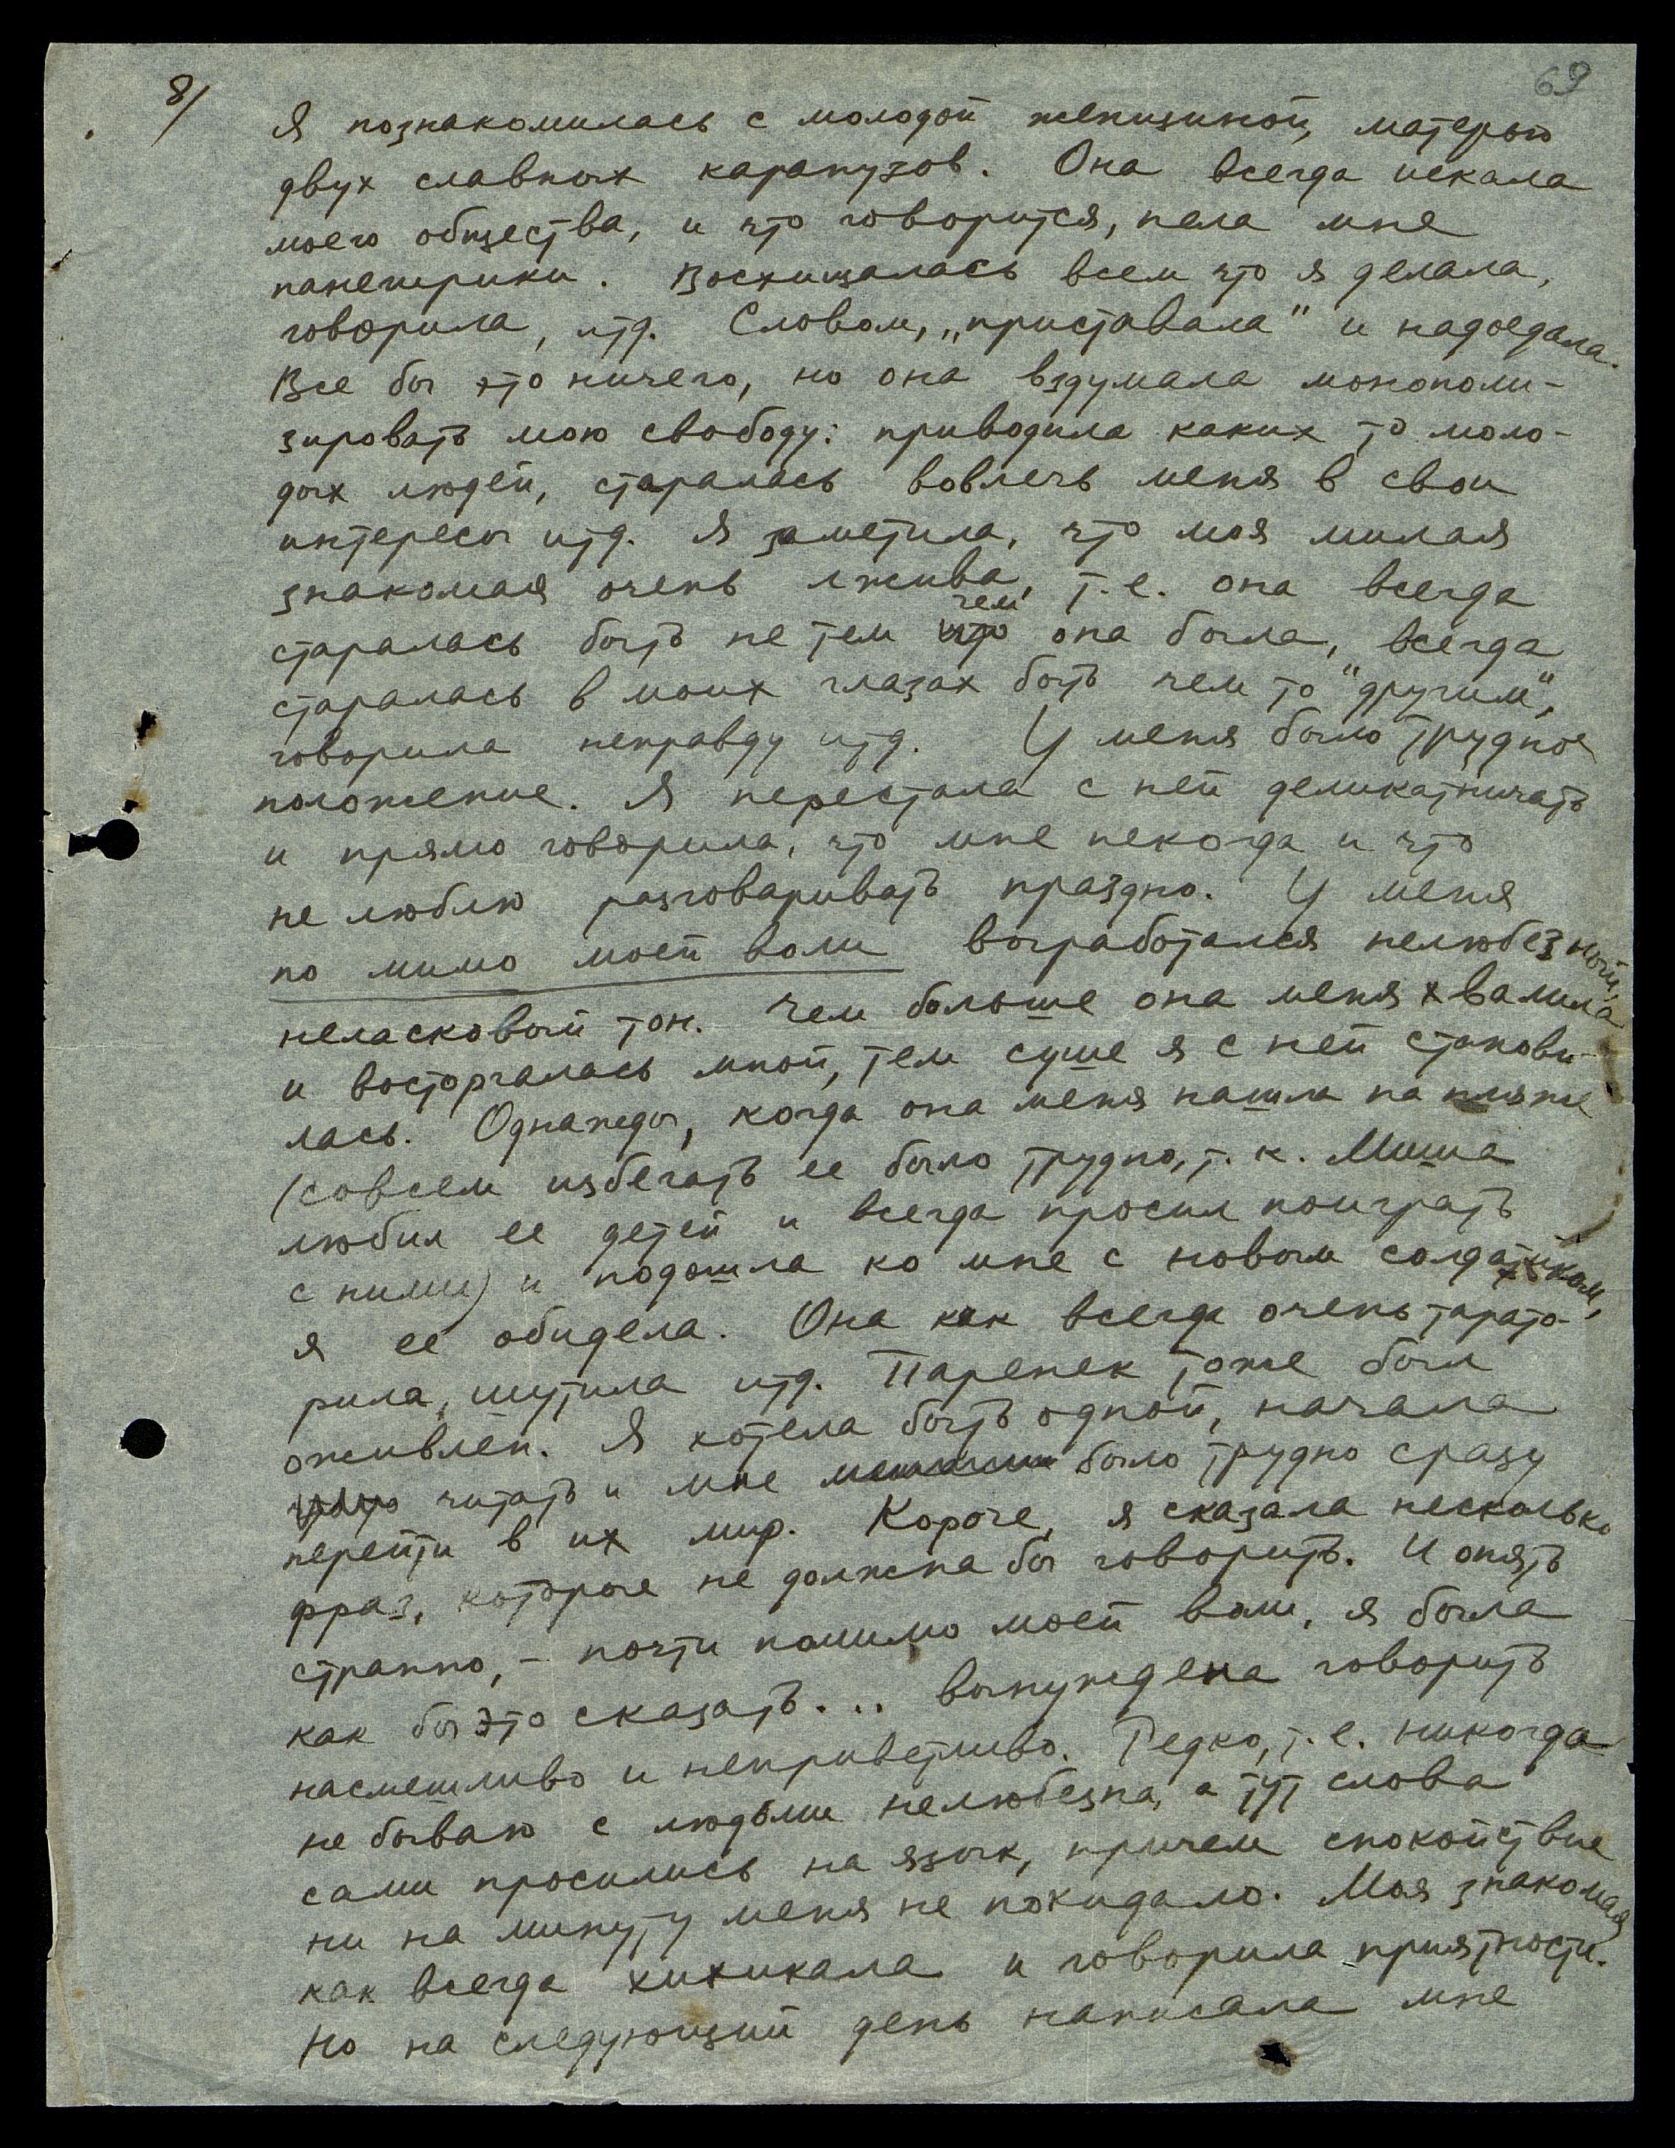 8/
69
Я познакомилась с молодой женщиной, матерью
двух славных карапузов. Она всегда искала
моего общества, и что говорится, пела мне
панегирики. Восхищалась всем что я делала,
говорила, итд. Словом, „приставала" и надоедала.
Все бы это ничего, но она вздумала монополи-
зировать мою свободу: приводила каких то моло-
дых людей, старалась вовлечь меня в свои
интересы итд. Я заметила, что моя милая
знакомая очень лжива, т.е. она всегда
чем
старалась быть не тем что она была, всегда
старалась в моих глазах быть чем то "другим",
говорила неправду итд. У меня было трудное
положение. Я перестала с ней деликатничать
и прямо говорила, что мне некогда и что
не люблю разговаривать праздно. У меня
по мимо моей воли выработался нелюбезный,
неласковый тон. Чем больше она меня хвалила
и восторгалась мной, тем суше я с ней станови-
лась. Однажды, когда она меня нашла на пляже
(совсем избегать ее было трудно, т.к. Миша
любил ее детей и всегда просил поиграть
с ними) и подошла ко мне с новым солдатиком,
я ее обидела. Она как всегда очень тарато-
рила, шутила итд. Паренек тоже был
оживлен. Я хотела быть одной, начала
читать и мне было трудно сразу
перейти в их мир. Короче, я сказала несколько
фраз, которые не должна бы говорить. И опять
странно, - почти помимо моей воли, я была
как бы это сказать... вынуждена говорить
насмешливо и неприветливо. Редко, т.е. никогда
не бываю с людьми нелюбезна, а тут слова
сами просились на язык, причем спокойствие
ни на минуту меня не покидало. Моя знакомая
как всегда хихикала и говорила приятности.
Но на следующий день написала мне